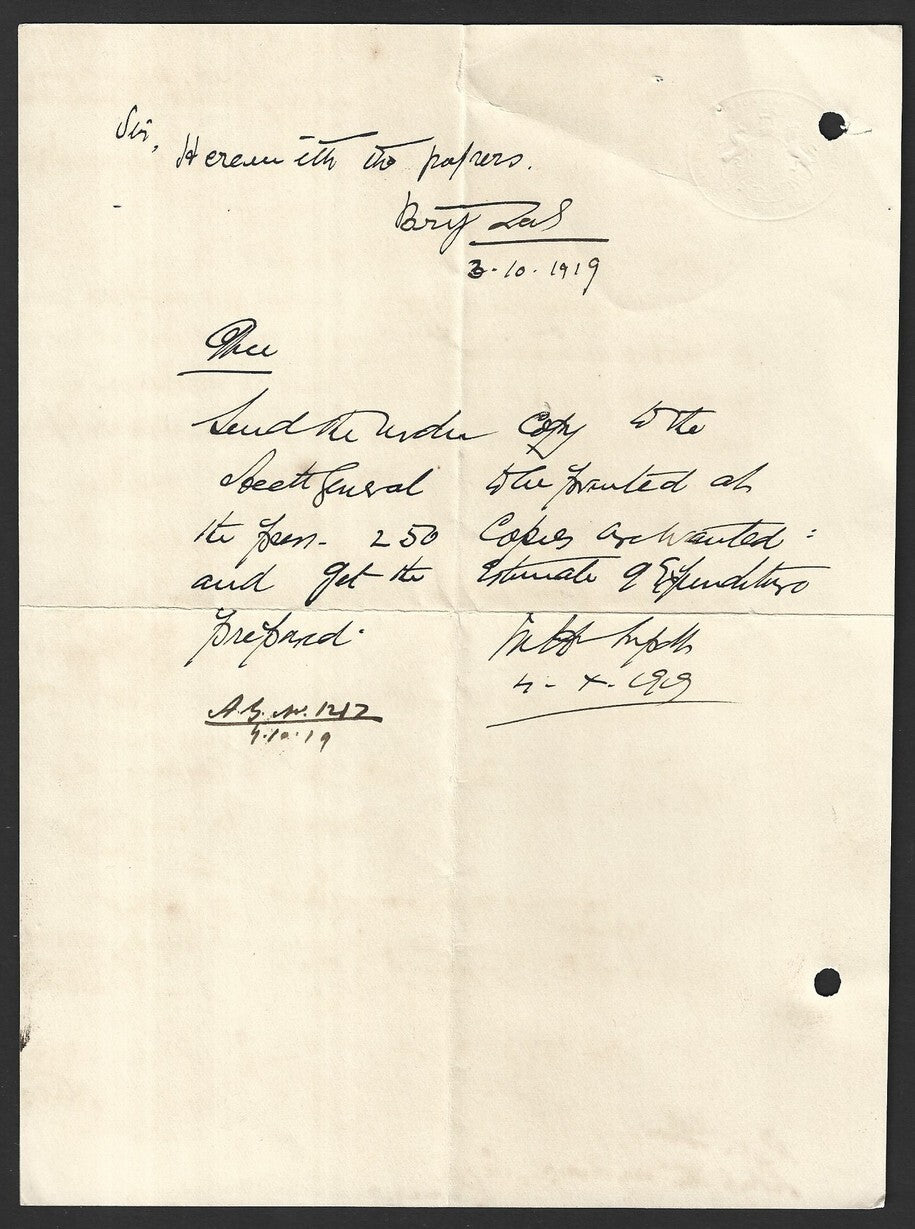 Sir,
Herewith the papers.
Brij Lal
3-10-1919
Office
Send the under Copy to the
Acctt General to be printed at
the press- 250 Copies are wanted:
and get the Estimate of Expenditure
prepared.
4-X-1919
A.G. No. 1217
4.10.19